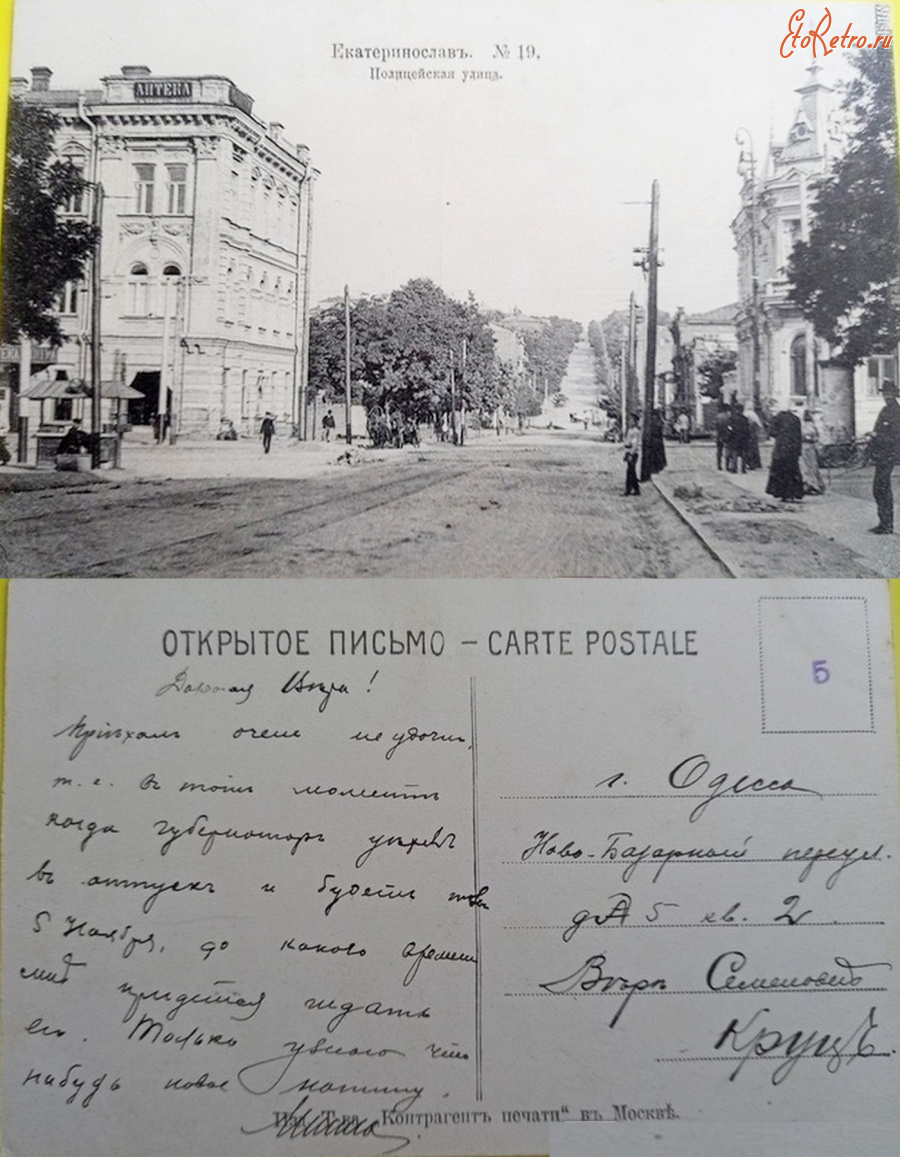 EtoRetro.ru
Екатеринославъ. № 19.
Полицейская улица.
АПТЕКА
ОТКРЫТОЕ ПИСЬМО – CARTE POSTALE
5
Дорогая Вѣра!
Пріѣхалъ очень неудачн.
т. е. въ тотъ моментъ
когда губернаторъ уѣхалъ
въ отпускъ и будетъ
5 Ноября, до какого времени
мнѣ придется ждать
его. Только узнаю что
нибудь новое напишу.
г. Одесса
Ново-Базарный переул.
д. 5 кв. 2
Вѣрѣ Семеновнѣ
Круцъ.
Изд. Т-ва „Контрагентъ печати“ въ Москвѣ.